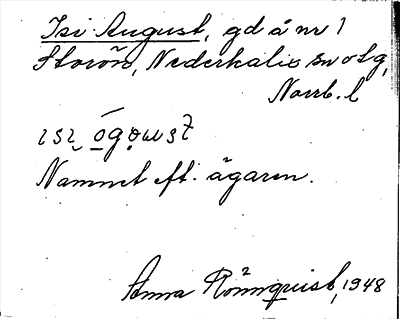 Isi August, gd å nr 1
Storön, Nederkalix sn o tg,
Norrb. l
ɪsɪ ōgowst
Namnet eft. ägaren.
Anna Rönnquist, 1948